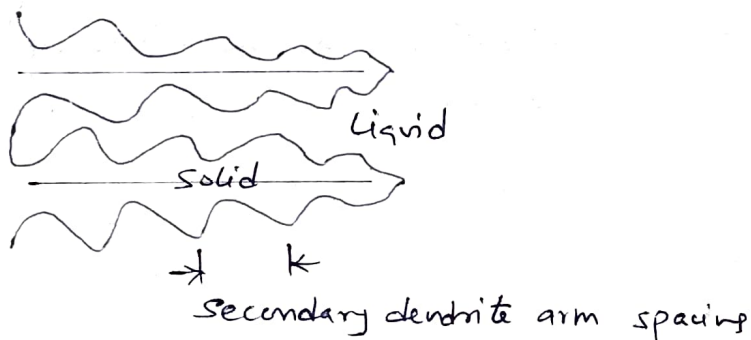 Liquid
Solid
Secondary dendrite arm spacing